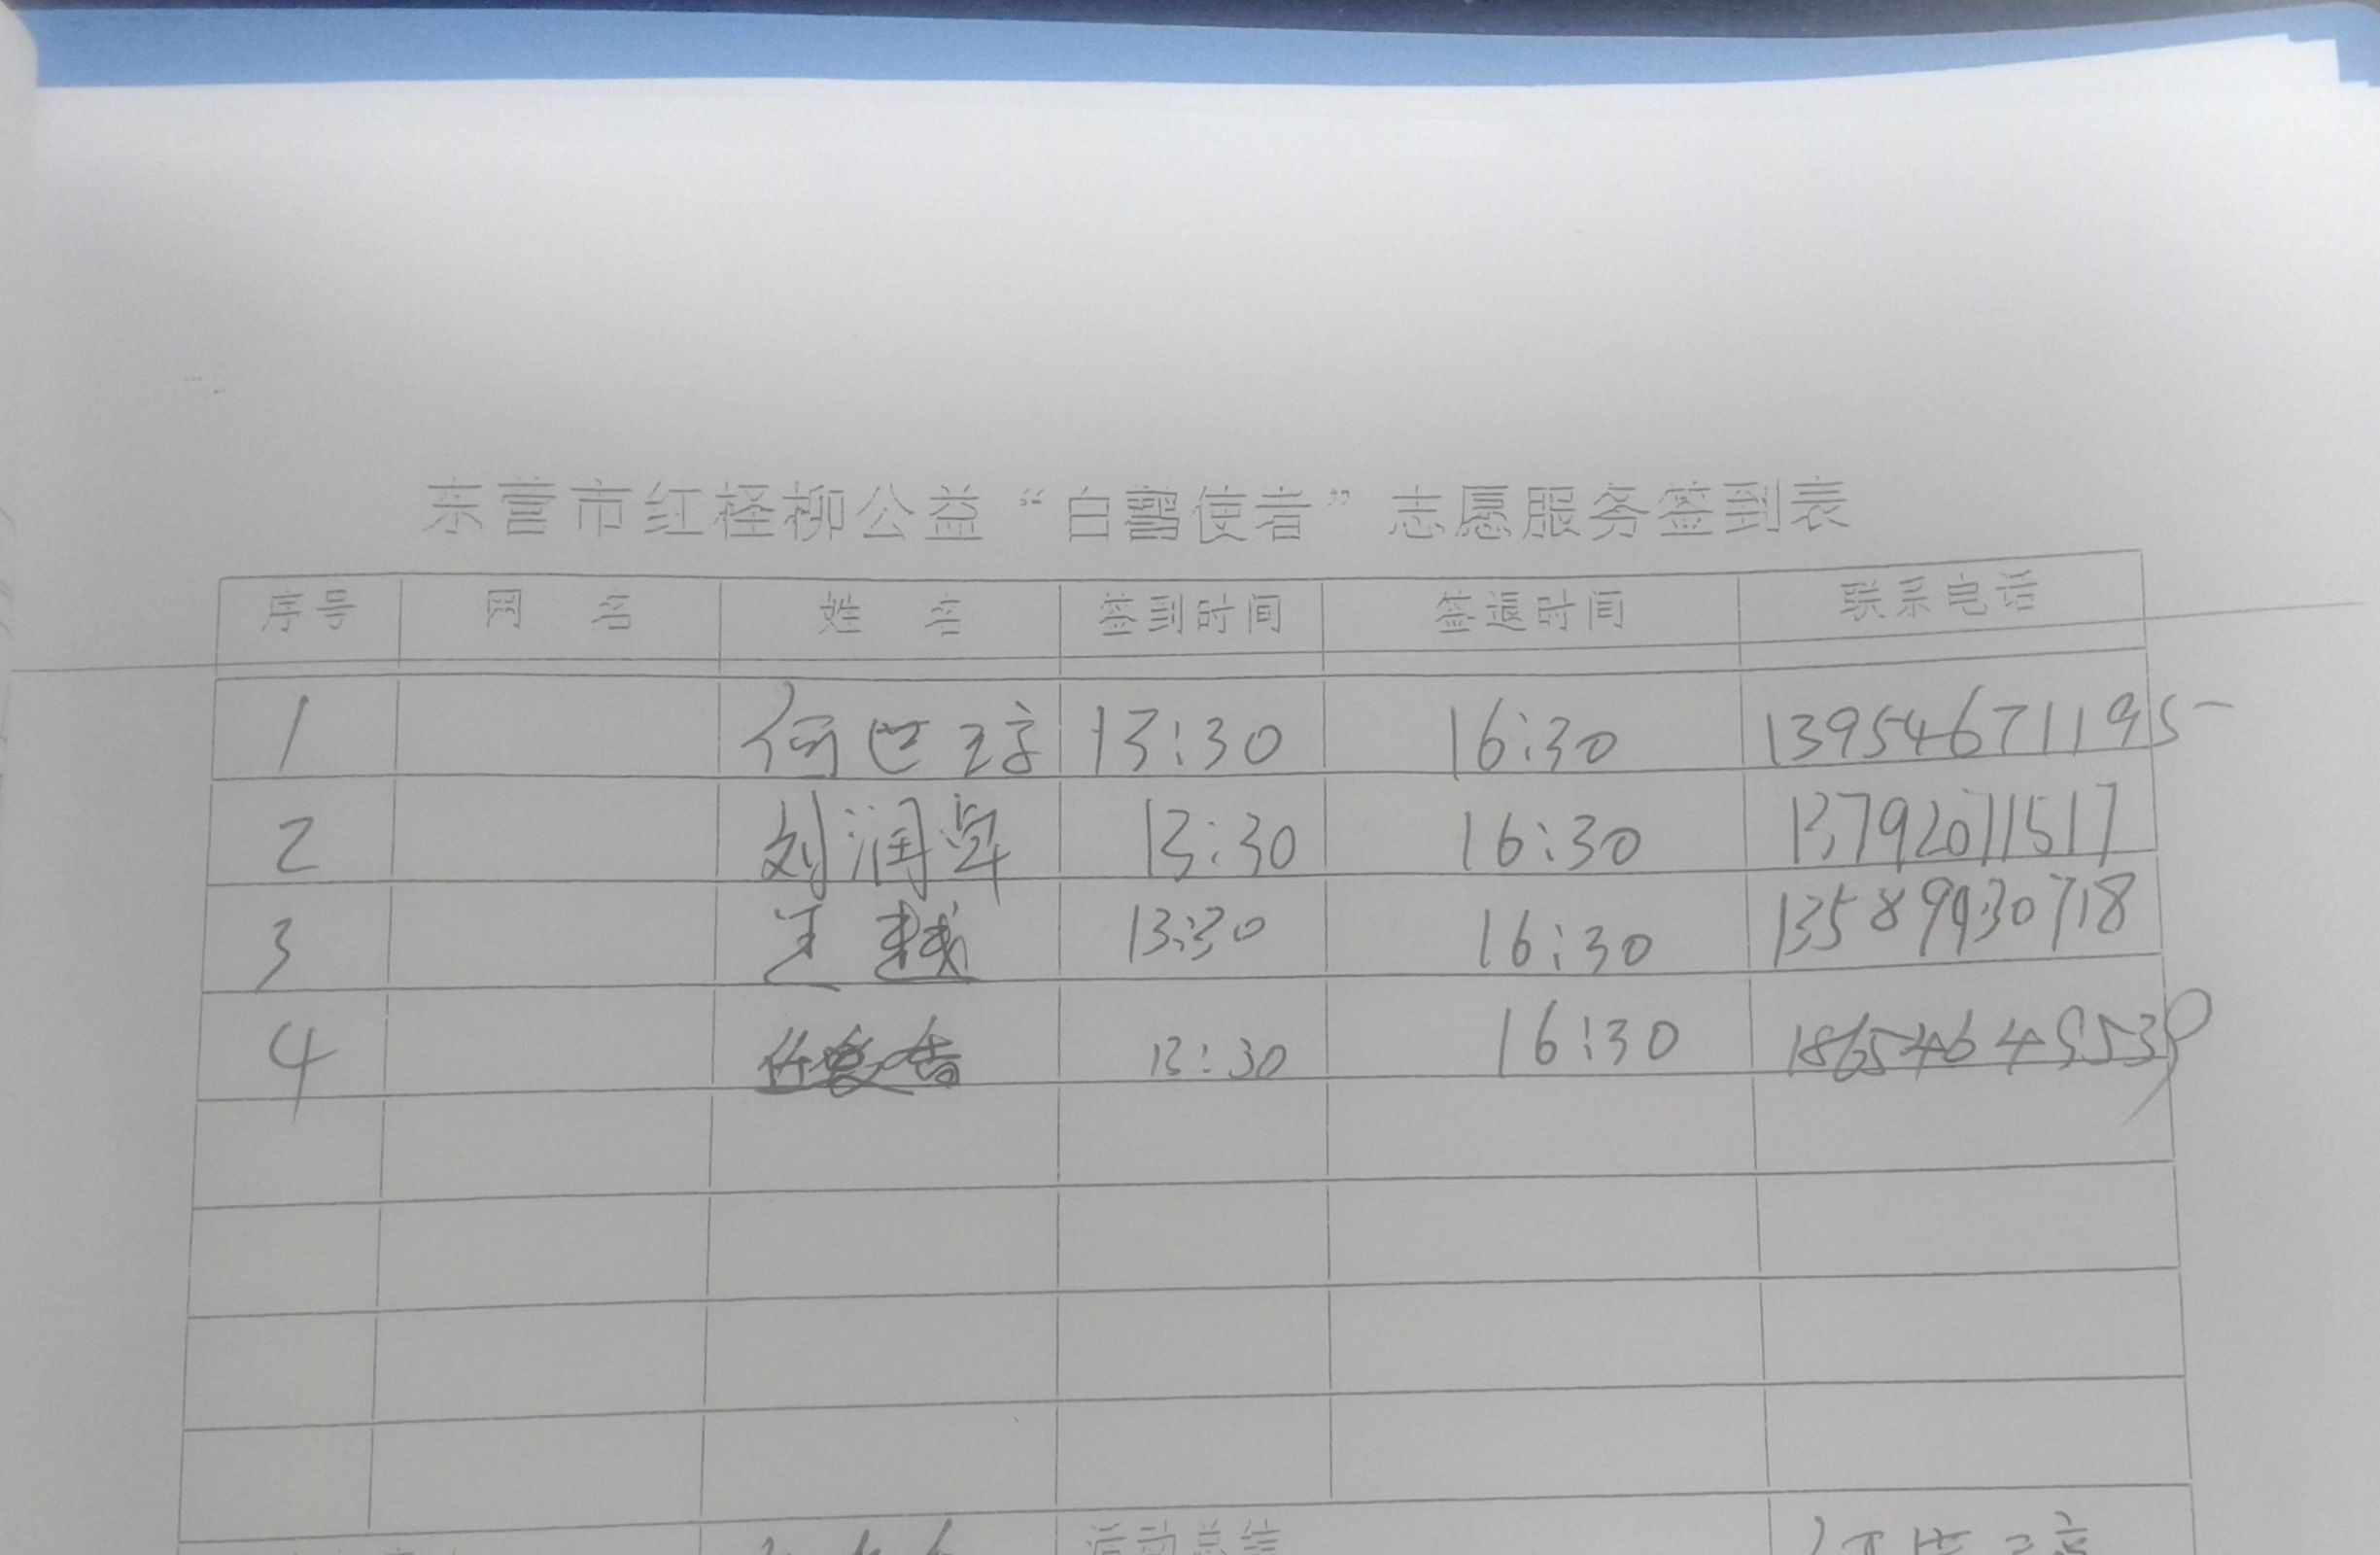 东营市红柽柳公益“白鹭使者”志愿服务签到表
序号 网 名 姓 名 签到时间 签退时间 联系电话
1 何世 13:30 16:30 13954671195
2 刘润卓 13:30 16:30 13792071517
3 王越 13:30 16:30 13589930718
4 13:30 16:30
活动总结